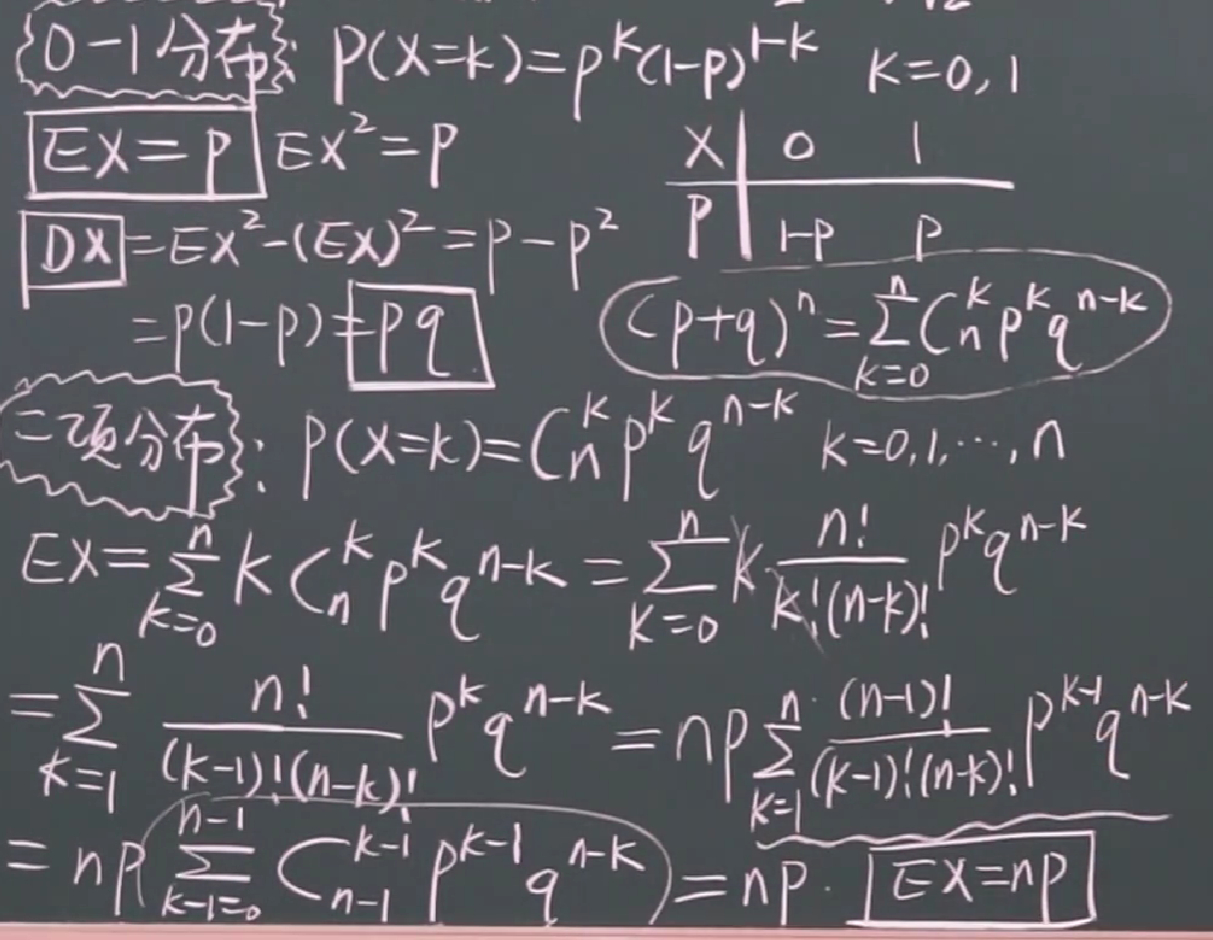 0-1分布: P(X=k)=p^k(1-p)^{1-k} k=0,1
EX=p EX²=p
X | 0 1
P | 1-p p
DX=EX²-(EX)²=p-p²
=p(1-p)=pq
(p+q)^n=∑_{k=0}^{n}C_n^k p^k q^{n-k}
二项分布: P(X=k)=C_n^k p^k q^{n-k} k=0,1,⋯,n
EX=∑_{k=0}^{n}k C_n^k p^k q^{n-k}=∑_{k=0}^{n}k·\frac{n!}{k!(n-k)!}p^k q^{n-k}
=∑_{k=1}^{n}\frac{n!}{(k-1)!(n-k)!}p^k q^{n-k}=np∑_{k=1}^{n}\frac{(n-1)!}{(k-1)!(n-k)!}p^{k-1}q^{n-k}
=np∑_{k-1=0}^{n-1}C_{n-1}^{k-1}p^{k-1}q^{n-k}=np. EX=np